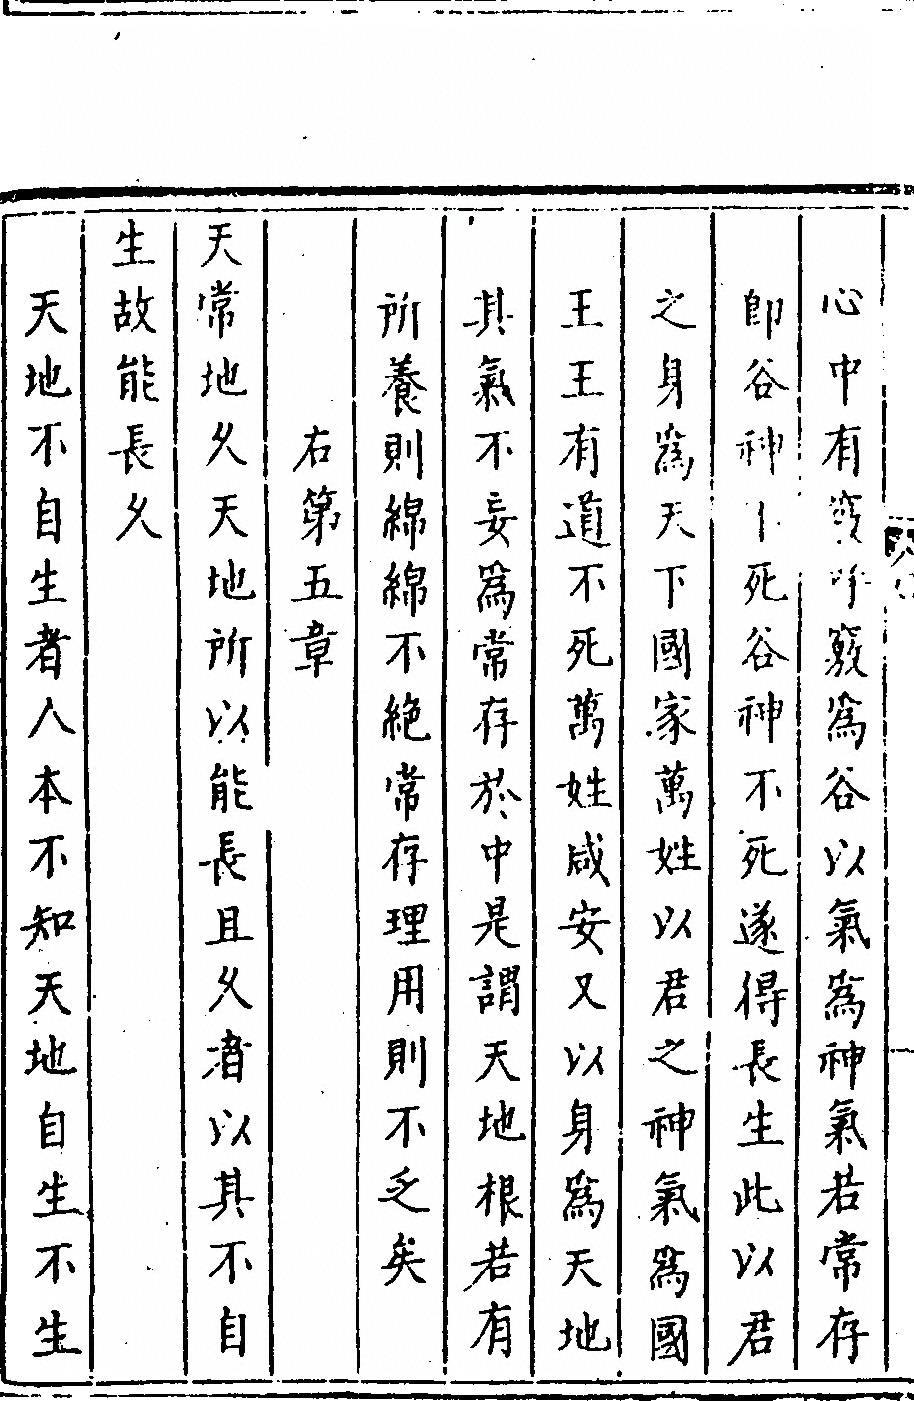 心中有竅呼竅為谷以氣為神氣若常存
卽谷神死谷神不死遂得長生此以君
之身為天下國家萬姓以君之神氣為國
王王有道不死萬姓咸安又以身為天地
其氣不妄為常存於中是謂天地根若有
所養則綿綿不絶常存理用則不乏矣
右第五章
天常地久天地所以能長且久者以其不自
生故能長久
天地不自生者人本不知天地自生不生